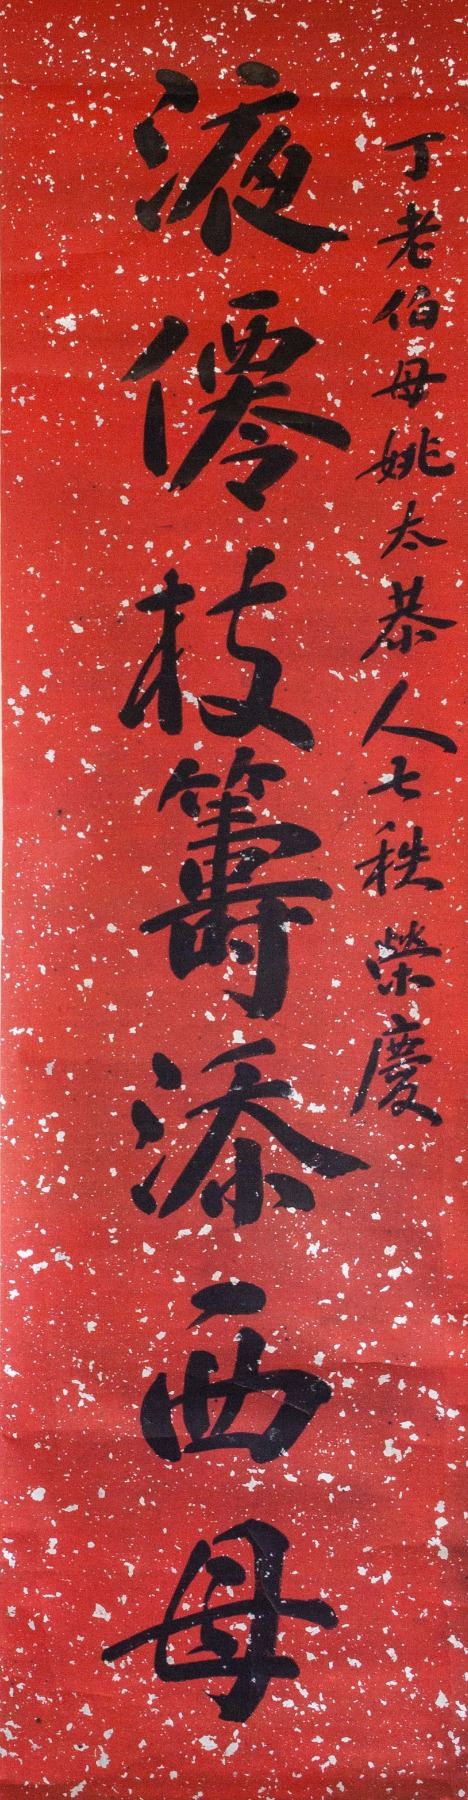 丁老伯母姚太恭人七秩榮慶
液僊枝籌添西母